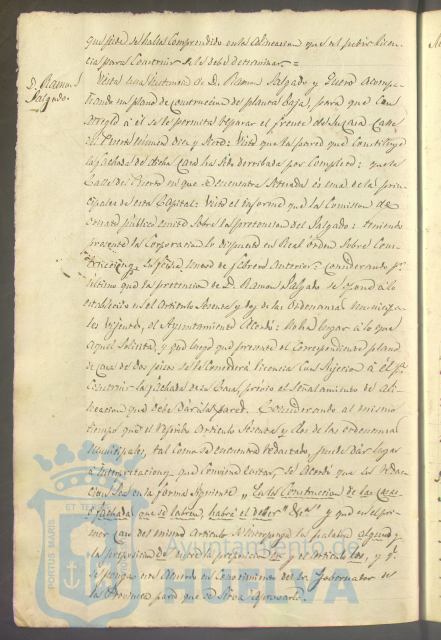 que este se halla Comprendido en la Alineacion que al pedir licen-
cia para Construir se le debe determinar. =
D. Ramon Salgado.
Vista una instancia de D. Ramon Salgado y Quero acompa-
ñando un plano de Construccion de planta baja, para que con
arreglo á él se le permita reparar el frente de su Casa Calle
del Puerto número diez y : Visto que la pared que Constituye
la fachada de dicha Casa ha sido derribada por Completo: que la
Calle del Puerto en que se encuentra situada és una de las prin-
cipales de esta Capital: Visto el informe que la Comision de
ornato público emitió sobre la pretencion del Salgado: teniendo
presente la Corporacion lo dispuesto en Real órden sobre Cons-
trucciones fecha de febrero Anterior: Considerando pr.
último que la pretencion de D. Ramon Salgado se opone á lo
establecido en el Articulo Sesenta y dos de las Ordenanzas Municipa-
les vijentes, el Ayuntamiento Acordó: No há lugar á lo que
aquel solicita, y que luego que presente el Correspondiente plano
de Casa de dos pisos se le Concederá licencia Con Sujecion á él pa.
Construir la fachada de su Casa, prévio el Señalamiento de Ali-
neacion que debe dár á la pared. Considerando al mismo
tiempo que el referido Articulo Sesenta y dos de las ordenanzas
municipales, tal como se encuentra redactado, puede dár lugar
á interpretaciones que conviene evitar, se Acordó que la redac-
cion sea en la forma siguiente "En las Construcciones de las Casas
ó fachada que se labren, habrá el deber" &.ª" y que en el pri-
mer Caso del mismo Articulo se interponga la palabra alguno y
la preposicion de el articulo las, y q.e
se ponga este Acuerdo en Conocimiento del Sr. Gobernador de
la Provincia para que se sirva aprovarlo.
PORTUS MARIS ET TERRAE
Ayuntamiento de
HUELVA